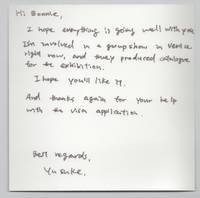 Hi Boomie,
I hope everything is going well with you.
I'm involved in a group show in Venice
right now, and they produced catalogue
for the exhibition.
I hope you'll like it.
And thanks again for your help
with the visa application.
Best regards,
Yusuke.